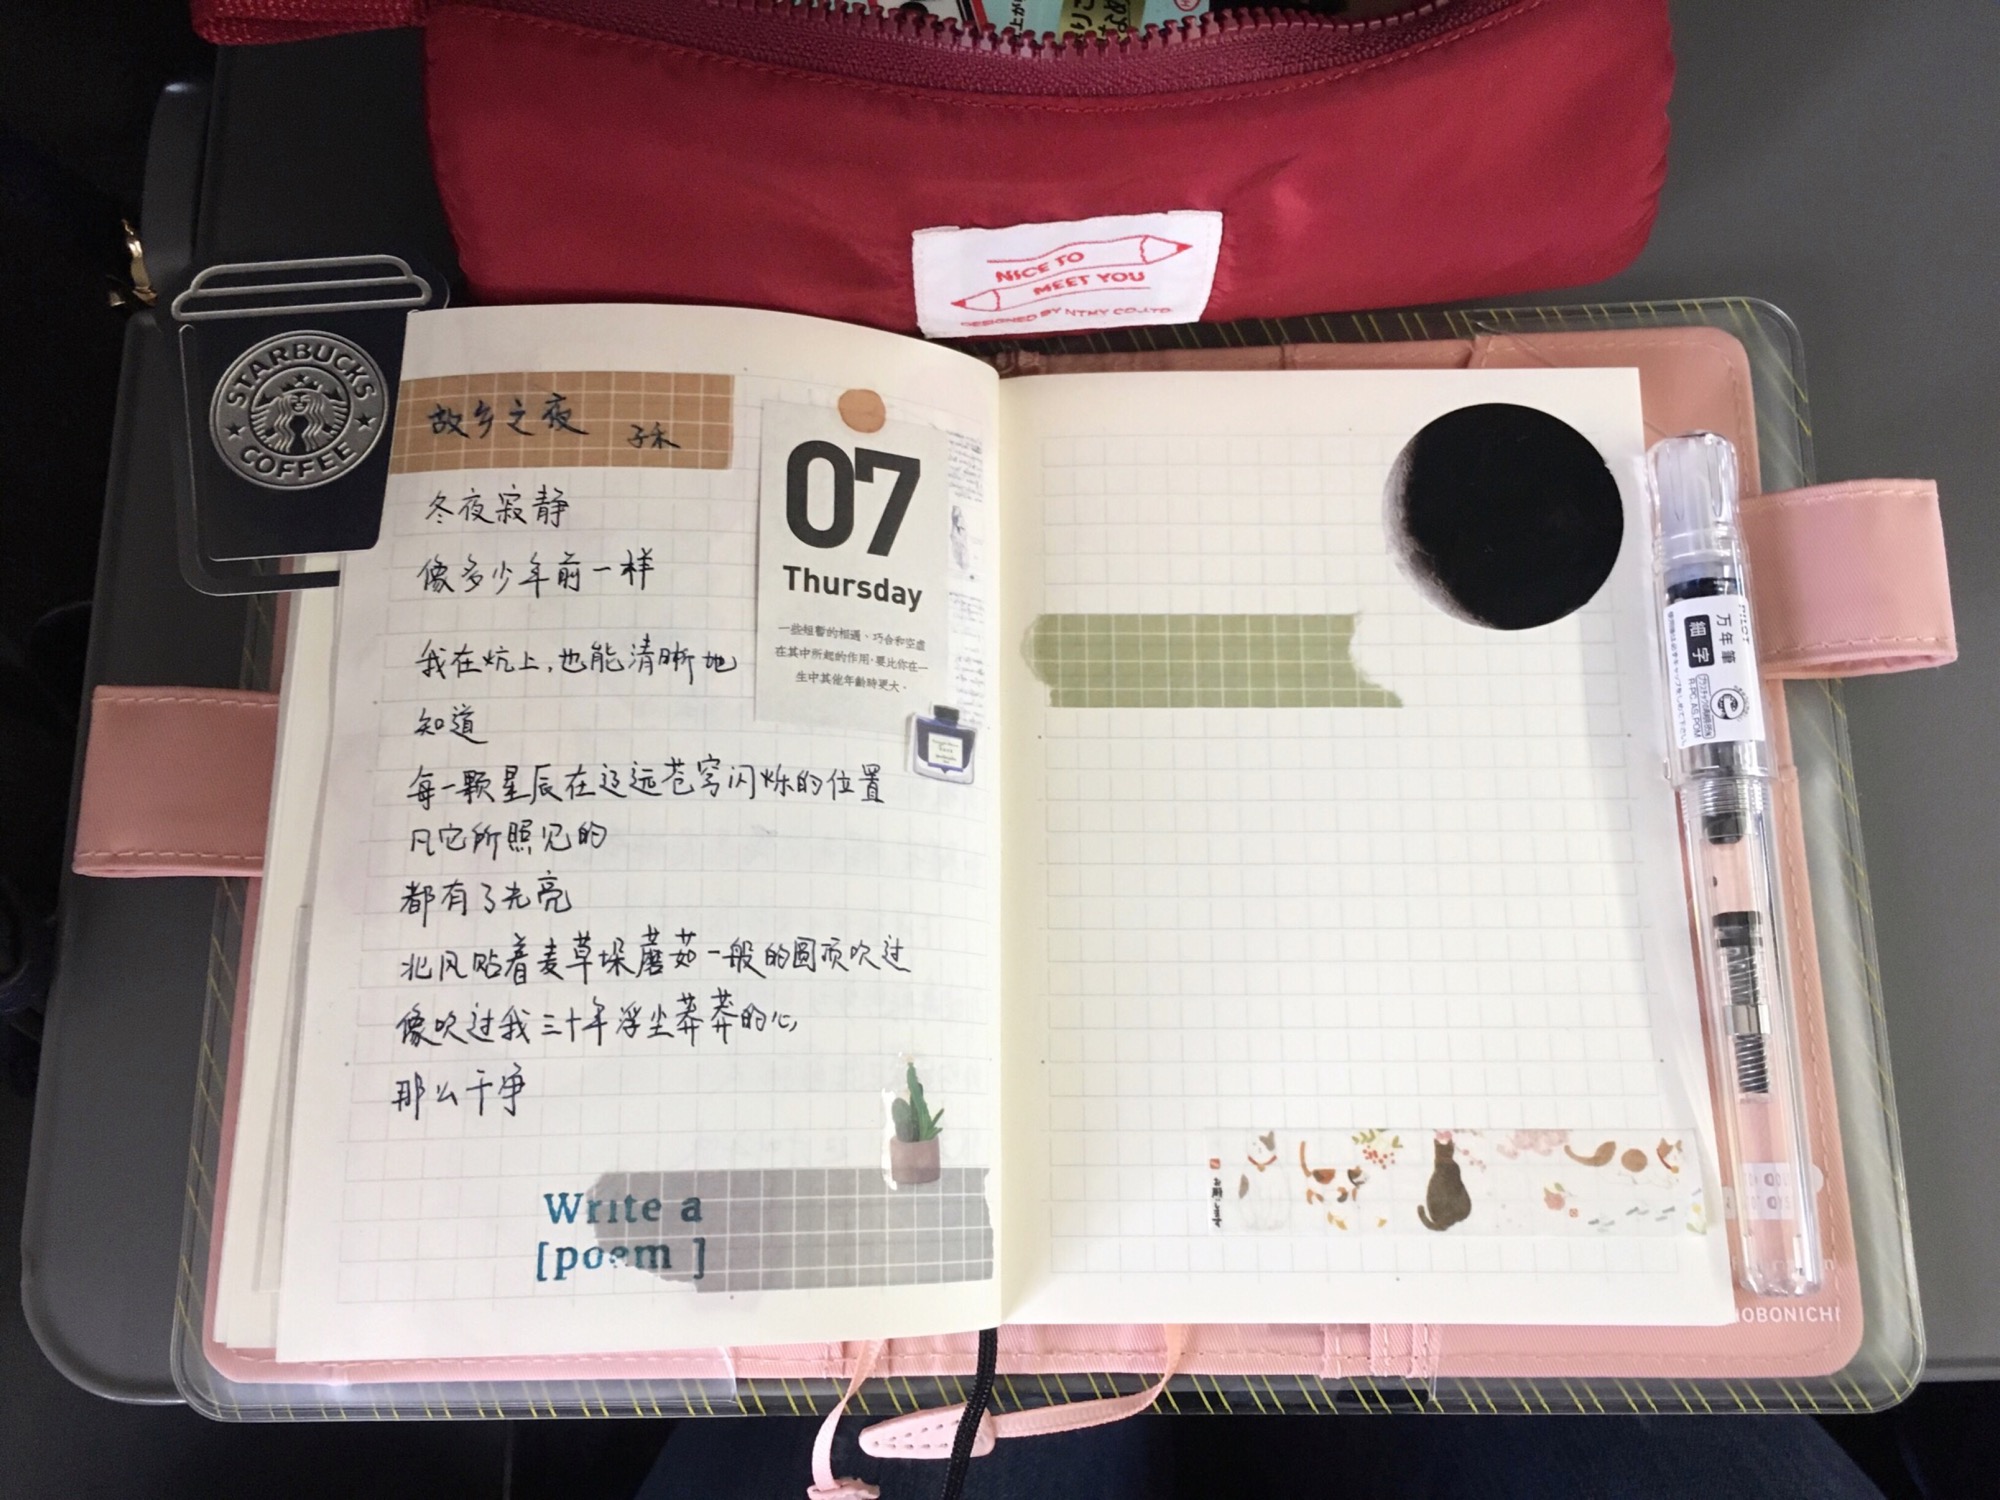 NICE TO
MEET YOU
DESIGNED BY NTMY CO.,LTD.
STARBUCKS
COFFEE
故乡之夜 子禾
冬夜寂静
像多少年前一样
我在炕上,也能清晰地
知道
每一颗星辰在辽远苍穹闪烁的位置
凡它所照见的
都有了光亮
北风贴着麦草垛蘑菇一般的圆顶吹过
像吹过我三十年浮尘莽莽的心
那么干净
07
Thursday
一些短暫的相遇、巧合和空虛
在其中所起的作用,要比你在一
生中其他年齡時更大。
Write a
[poem ]
PILOT
万年筆
細字
HOBONICHI